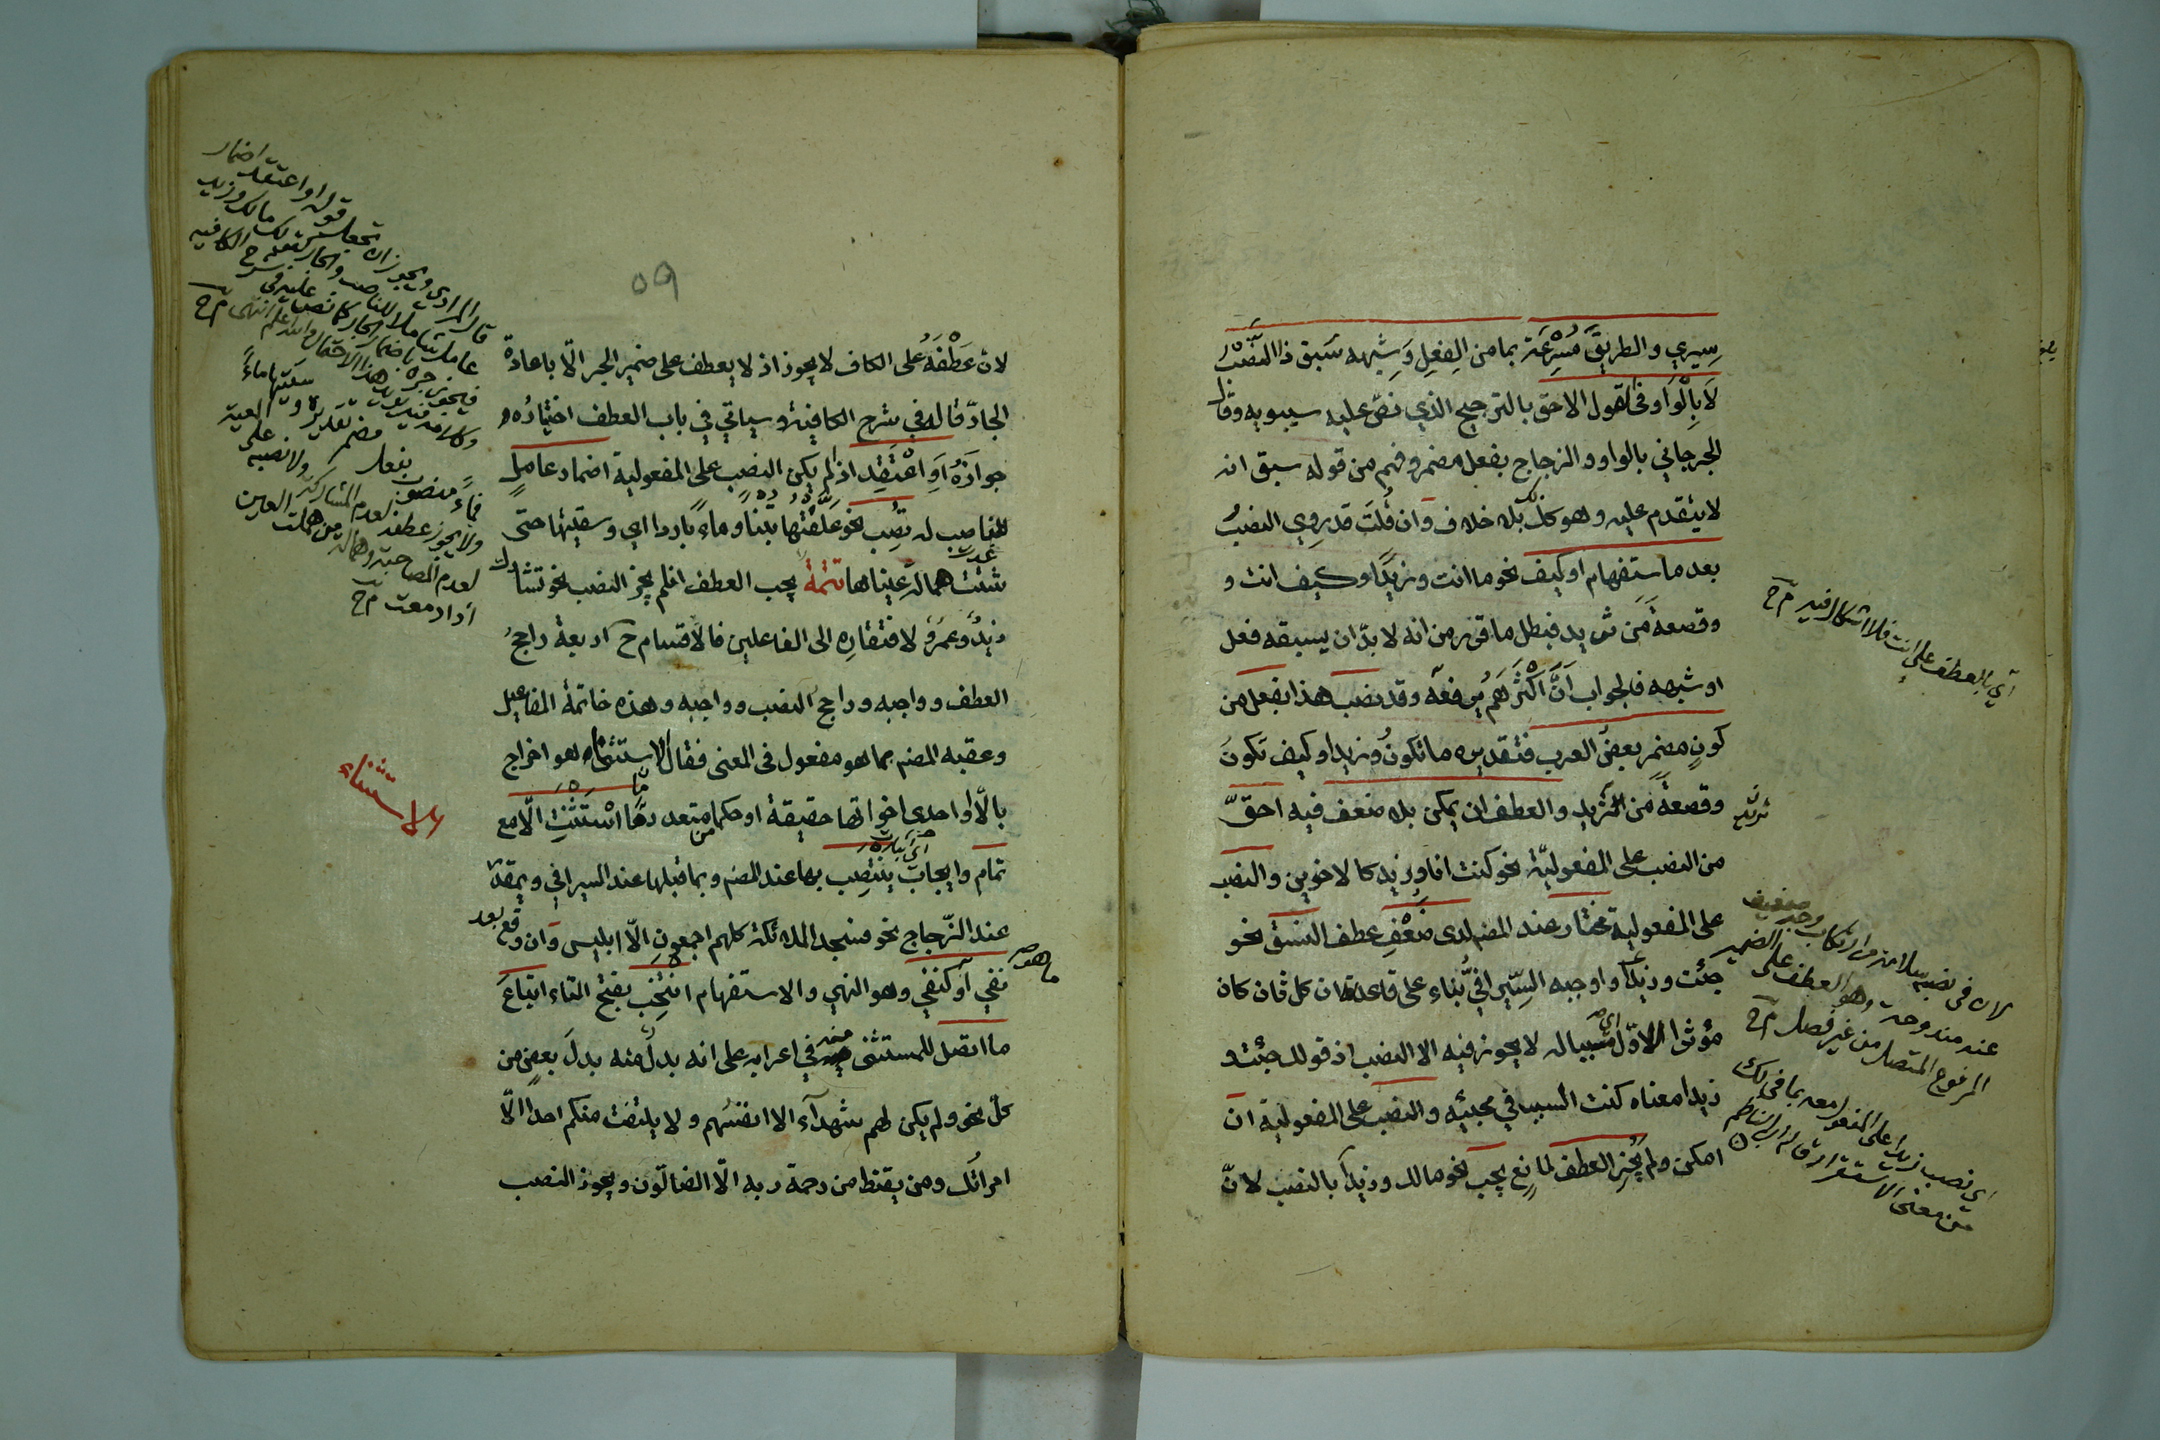 سِيرِي والطريقَ مُسْرِعَة بما من الفِعلِ وَشِبهه سَبق ذا النَصْبُ
لَا بِالْوَاو في القول الاحق بالترجيح الذي نصّ عليه سيبويه وقال
الجرجاني بالواو والزجاج بفعل مضمر وفهم من قوله سبق انه
لا يتقدم عليه وهو كذلك بلا خلاف وَان قُلتَ قد روي النصبُ
بعد ما ستفهام او كيف نحو ما انت وزيدًا وكيف انت و
وقصعةً مَن ثريد فبطل ما قرر من انه لا بدّ ان يسبقه فعل
او شبهه فالجواب اَنَّ اَكْثَرَهُم يرفعه وقد نصب هذا بفعل من
كونٍ مضمر بعضُ العرب فتقديره ما تكونُ وزيدا وكيف تكونَ
وقصعةً مَن ثريد والعطف ان يمكن بلا ضعف فيه احقّ
ثريد
من النصب على المفعوليّة نحو كنت انا وزيد كالاخوين والنصب
على المفعولية مختار عند المصنم لدى ضَعْفِ عطف النسق نحو
جئت وزيدًا واوجبه السِّيرافيُّ بناء على قاعدة ان كل ثان كان
مؤثرا للاوّل مسببا له لا يجوز فيه الا النصب اذ قولك جئت و
زيدا معناه كنت السبب في مجيئه والنصب على المفعولية ان
امكن ولم يَجُزِ العطف لمانِع يجب نحو مالك وزيدًا بالنصب لانّ
اي بالعطف على انت فلا اشكال فيه م ح
لان في نصبه سلامة من ارتكاب وجه ضعيف
عنه مندوحة وهو العطف على الضمير
المرفوع المتصل من غير فصل م ح
اي نصب زيدا على المفعول معه بما في لك
من معنى الاستقرار قاله ابن الناظم
٥٩
لان عَطْفَهُ على الكاف لا يجوز اذ لا يعطف على ضمير الجر الّا باعادة
الجارّ قاله في شرح الكافية وسياتي في باب العطف اختيارُه و
جوازَهُ اَوِ اعْتَقِد اذا لم يكن النصب على المفعولية اضمار عامِلٍ
للناصب له تُصِب نحو عَلَفْتُها تبْنًا وماءً باردا اي وسقيتها حتى
شتت همالة عيناها تتمة يجب العطف ان لم يجز النصب نحو تشارك
زيدٌ وعمرٌو لافتقارِه الى الفاعلين فالاقسام ح اربعة راجحُ
العطف وواجبه وراجح النصب وواجبه وهذه خاتمة المفاعيل
وعقبه المصنم بما هو مفعول في المعنى فقال الاستثناء هو اخراج
بالّا او احدى اخواتها حقيقة او حكما من متعدد مَا اسْتَثْنَتِ الّا مع
تمام وايجاب يَنْتَصِب بها عند المصنم وبما قبلها عند السيرافي وبمقدر
عند الزّجاج نحو فسجد الملائكة كلهم اجمعون الّا ابليس وَان وقع بعد
نفي اَو كنفي وهو النهي والاستفهام انتُخِب بفتح التاء اتباعَ
ما هو
ما اتصل للمستثنى منه في اعرابه على انه بدل منه بدلَ بعضٍ من
كلّ نحو ولم يكن لهم شهدآء الا انفسُهم ولا يلتفت منكم احد الّا
امراتُك ومن يقنط من رحمة ربه الّا الضالّون ويجوز النصب
قوله او اعتقد اضمار
قال المرادي ويجوز ان تجعل
عامل
فماءً منصوب بفعل مضمر تقديره وسقيتها ماءً
ولا يجوز عطفه لعدم المشاركة ولا نصبه على المعية
لعدم المصاحبة وهمالة من هملت العين
اذا دمعت م ح
الاستثناء